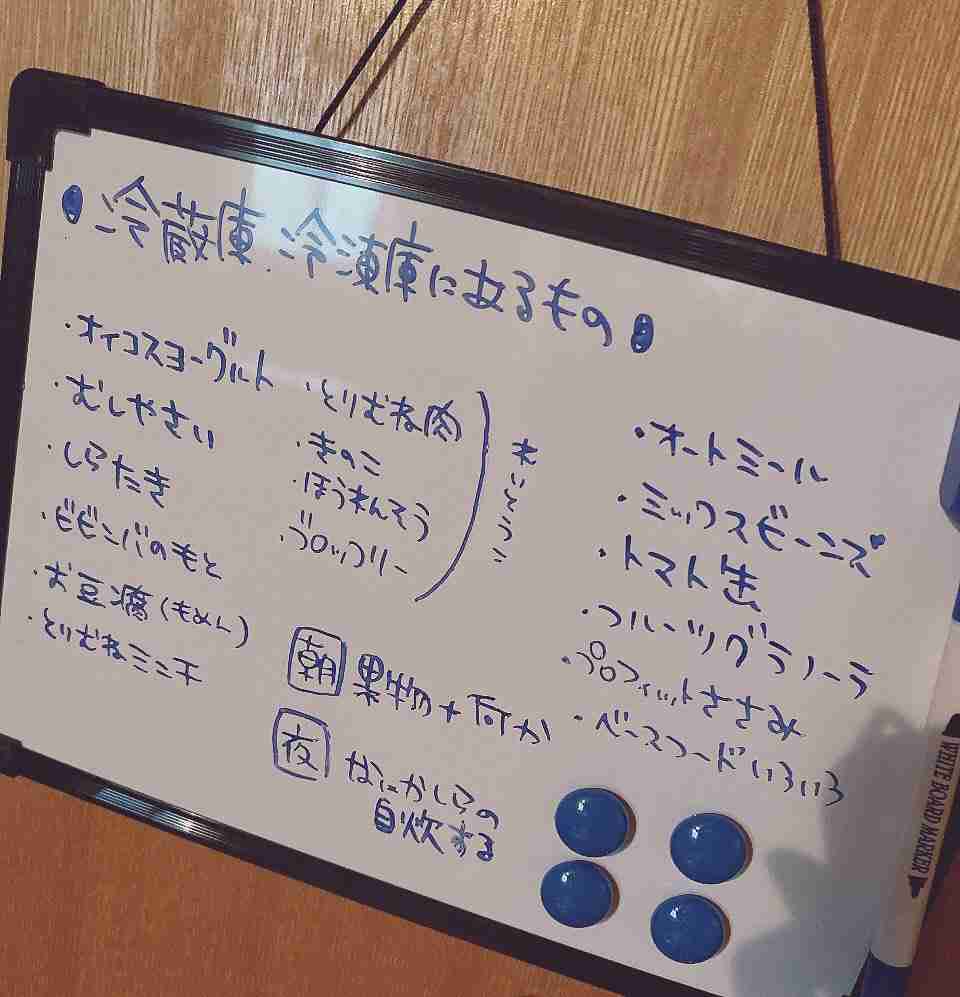 冷蔵庫.冷凍庫にあるもの
・オイコスヨーグルト
・むしやさい
・しらたき
・ビビンバのもと
・お豆腐(もめん)
・とりむねミンチ
・とりむね肉
・きのこ
・ほうれんそう
・ブロッコリー
れいとうこ
朝 果物+何か
夜 なにかしらの
自炊する
・オートミール
・ミックスビーンズ
・トマト缶
・フルーツグラノーラ
・プロフィットささみ
・ベースフードいろいろ
WHITE BOARD MARKER